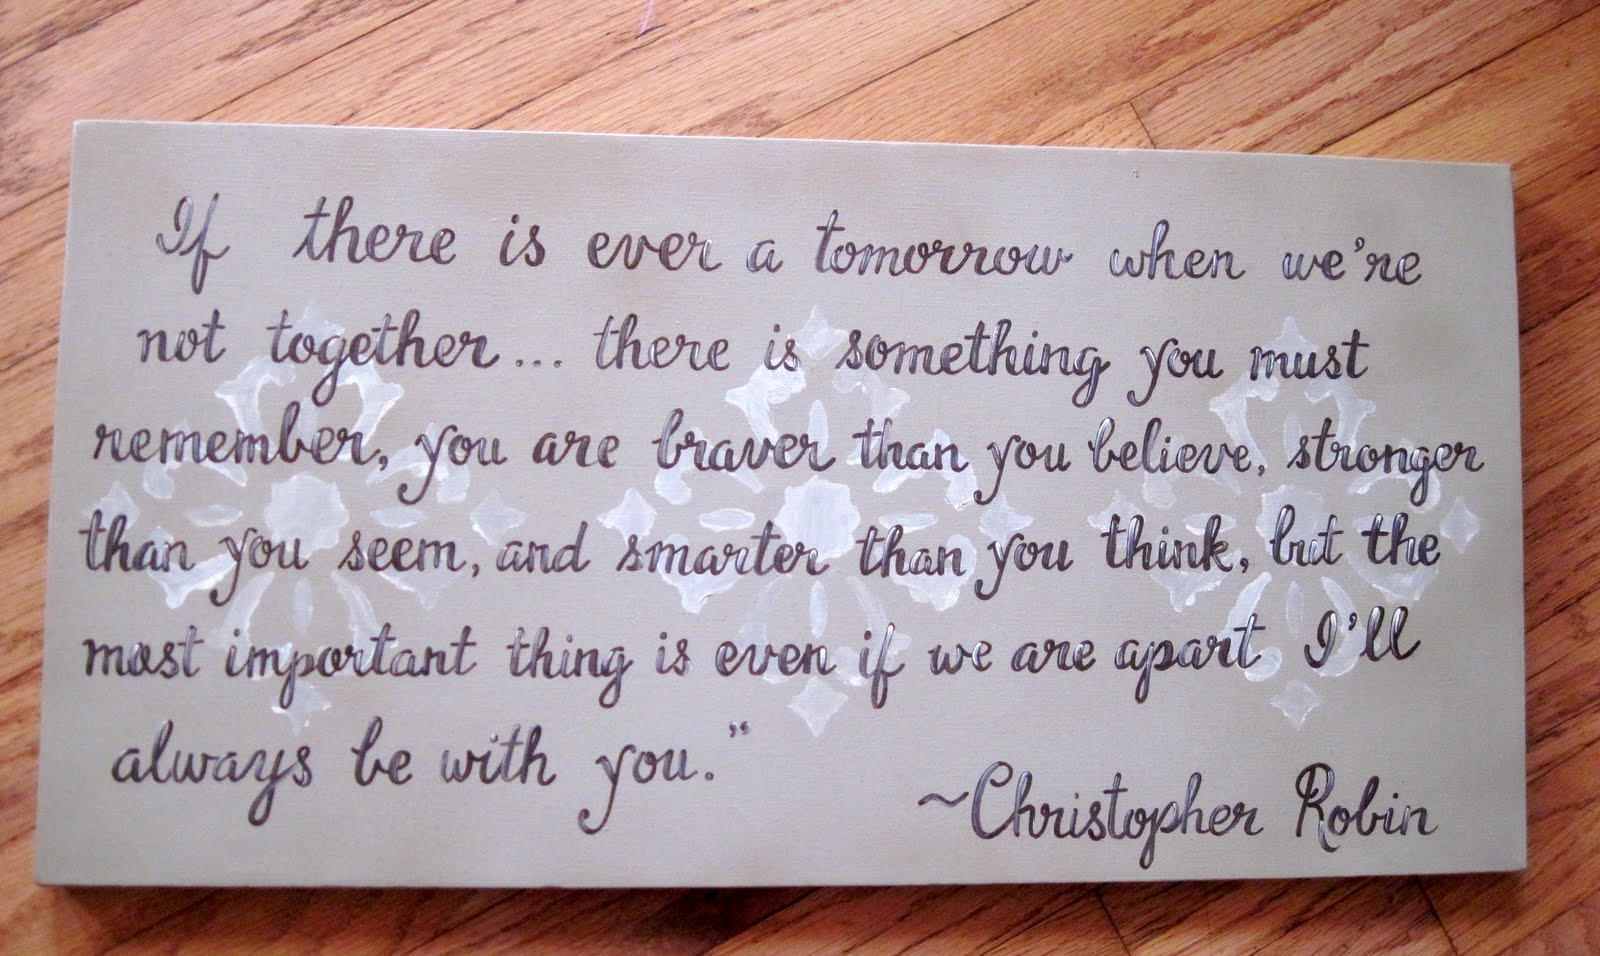 If there is ever a tomorrow when we're
not together... there is something you must
remember, you are braver than you believe, stronger
than you seem, and smarter than you think, but the
most important thing is even if we are apart I'll
always be with you."
~Christopher Robin